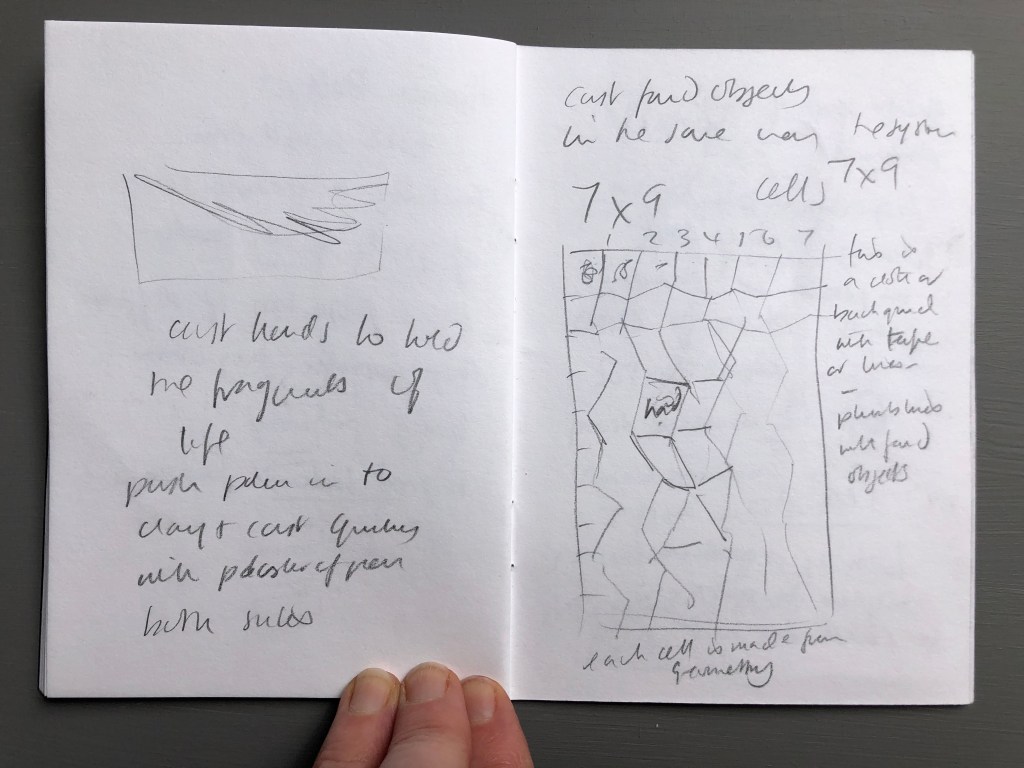 cast hands to hold
the fragments of
life
push palm in to
clay & cast quickly
with plaster of paris
both sides
cast found objects
in the same way
the system
7x9
cells
7x9
1 2 3 4 5 6 7
this is
a
background
with tape
or lines -
plants hands
with found
objects
hand
each cell is made from
geometry